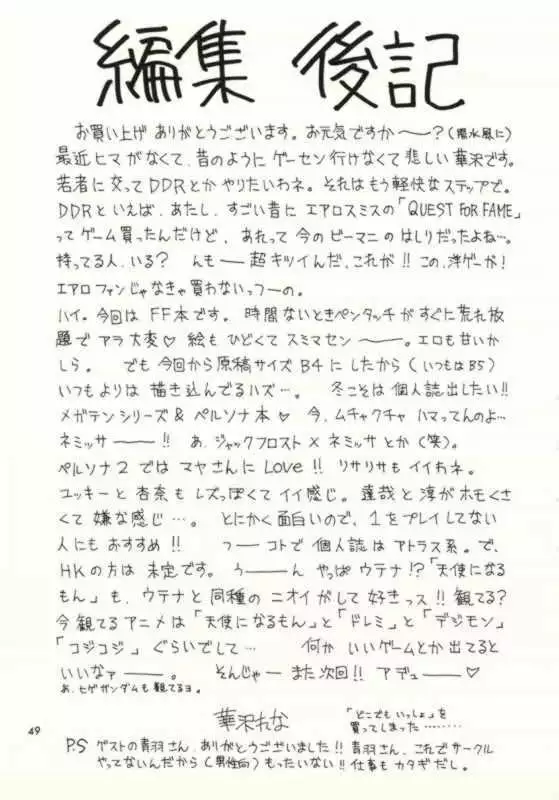 編集 後記
お買い上げ ありがとうございます。お元気ですか――?(陽水風に)
最近ヒマがなくて、昔のように ゲーセン行けなくて 悲しい 華沢です。
若者に交って DDRとか やりたいわネ。それはもう軽快なステップで。
DDRと いえば、あたし、すごい昔に エアロスミスの「QUEST FOR FAME」
って ゲーム買ったんだけど、あれって 今の ビーマニの はしりだったよね…。
持ってる人、いる? んも――超キツイんだ、これが!! この、洋ゲーが!
エアロファンじゃなきゃ 買わないっつーの。
ハイ。今回は FF本です。 時間ないときペンタッチが すぐに荒れ放
題で アラ大変♡ 絵も ひどくて スミマセン――。エロも甘いか
しら。 でも 今回から 原稿サイズ B4に したから(いつもはB5)
いつもよりは 描き込んでるハズ…。 冬こそは 個人誌出したい!!
メガテンシリーズ & ペルソナ本♡ 今、ムチャクチャ ハマってんのよ…
ネミッサ――!! あ、ジャックフロスト × ネミッサとか(笑)。
ペルソナ2 では マヤさんに Love!! リサリサも イイわネ。
ユッキーと 杏奈も レズっぽくて イイ感じ。達哉と 淳が ホモくさ
くて 嫌な感じ…。 とにかく 面白いので、1をプレイしてない
人にも おすすめ!! つーコトで 個人誌は アトラス系。で、
HKの方は 未定です。 う――ん やっぱ ウテナ!?「天使になる
もん」も、ウテナと 同種の ニオイがして 好きっス!! 観てる?
今 観てる アニメは「天使になるもん」と「ドレミ」と「デジモン」
「コジコジ」ぐらいでして… 何か いいゲームとか 出てると
いいなァ――。 そんじゃー また次回!! アデュー――♡
あ、ヒゲガンダムも 観てるヨ。
華沢れな
「どこでもいっしょ」を
買ってしまった………
P.S ゲストの青羽さん、ありがとうございました!! 青羽さん、これでサークル
やってないんだから(男性向)もったいない!! 仕事も カタギだし。
49